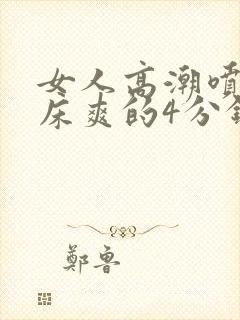 女人高潮喷
床爽的4分钟
鄭魯